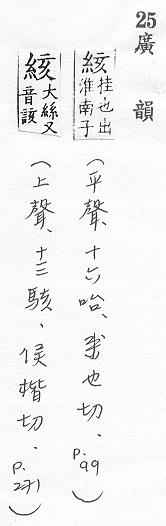 25廣韻
絯 挂也出淮南子 (平聲、十六咍、 也切、p.99)
絯 大絲又音該 (上聲、十三駭、侯楷切、p.271)